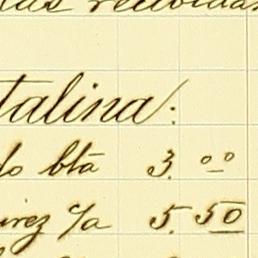 recibidas
talina:
do btā 3.00
irez c/a 5.50